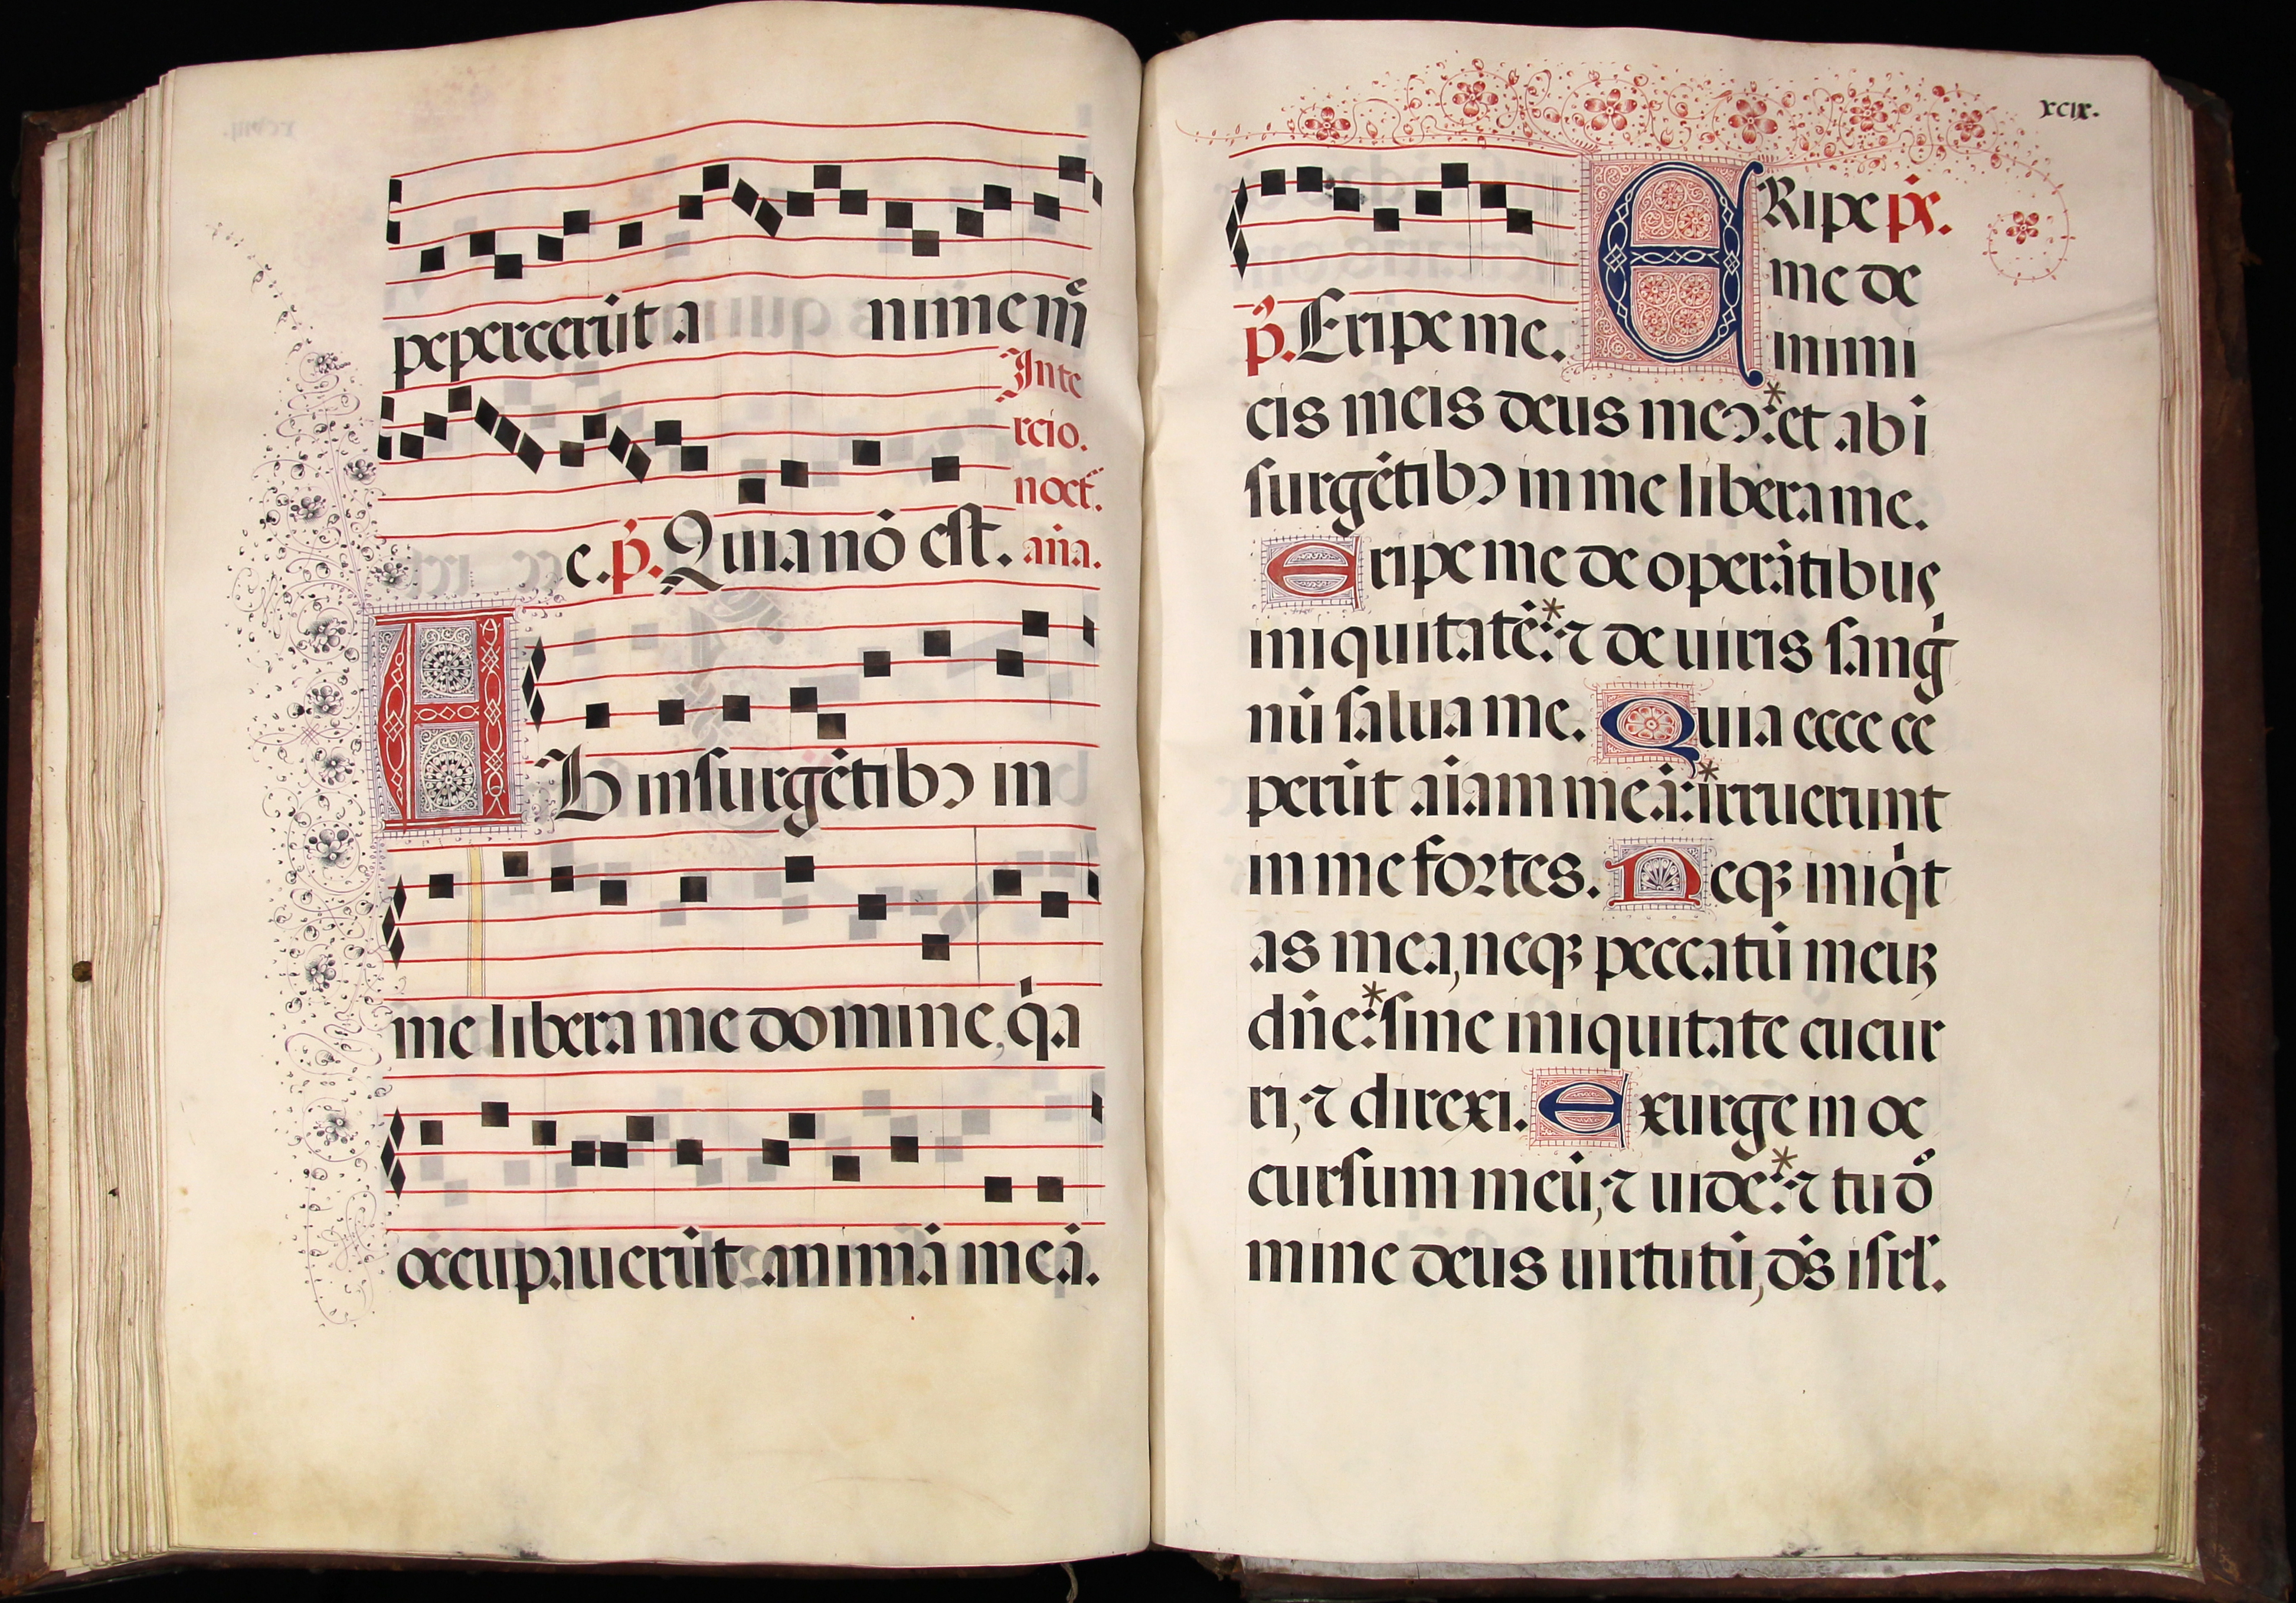 pepercerūt a nime m̄
Inte
rcio.
noct̄.
e. p̄. Quia nō est. aīa.
AB insurgētibꝰ in
me libera me domine, q̇a
occupauerūt animā meā.
xcix.
ERipe ps̄.
me de
p̄. Eripe me. inimi
cis meis deus meꝰ: * et ab ī
surgētibꝰ in me libera me.
Eripe me de operātibus
iniquitatē: * ⁊ de uiris sanġ
nū salua me. Quia ecce ce
perūt aīam meā: * irruerunt
in me fortes. Neqꝫ iniq̇t
as mea, neqꝫ peccatū meuꝫ
dn̄e: * sine iniquitate cucur
ri, ⁊ direxi. Exurge in oc
cursum meū, ⁊ uide: * ⁊ tu dō
mine deus uirtutū, ds̄ isrl̄.